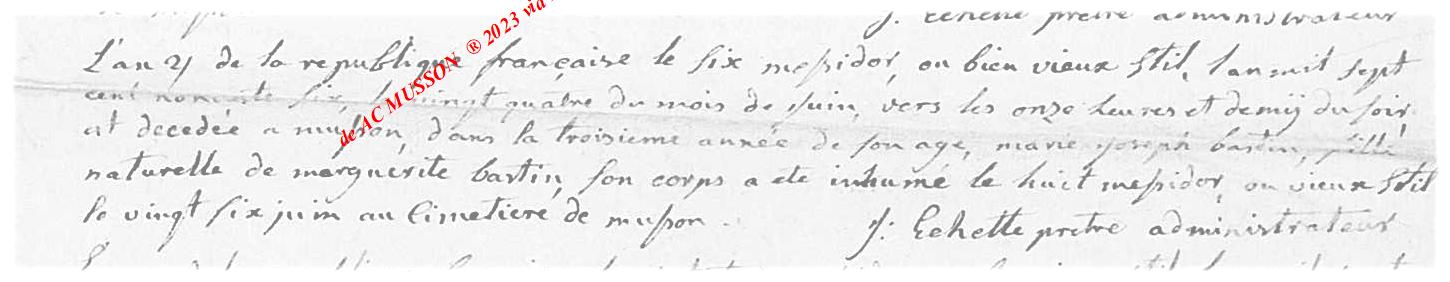 J. Echette pretre administrateur
L'an 4 de la republique française le six messidor, ou bien vieux stil, l'an mil sept
cent nonante six, le vingt quatre du mois de juin, vers les onze heures et demij du soir
est decedée a musson, dans la troisieme année de son age, marie joseph bastin, fille
naturelle de marguerite bastin, son corps a été inhumé le huit messidor, ou vieux stil
le vingt six juin au cimetiere de musson.
J. Echette pretre administrateur
de AC MUSSON ® 2023 via